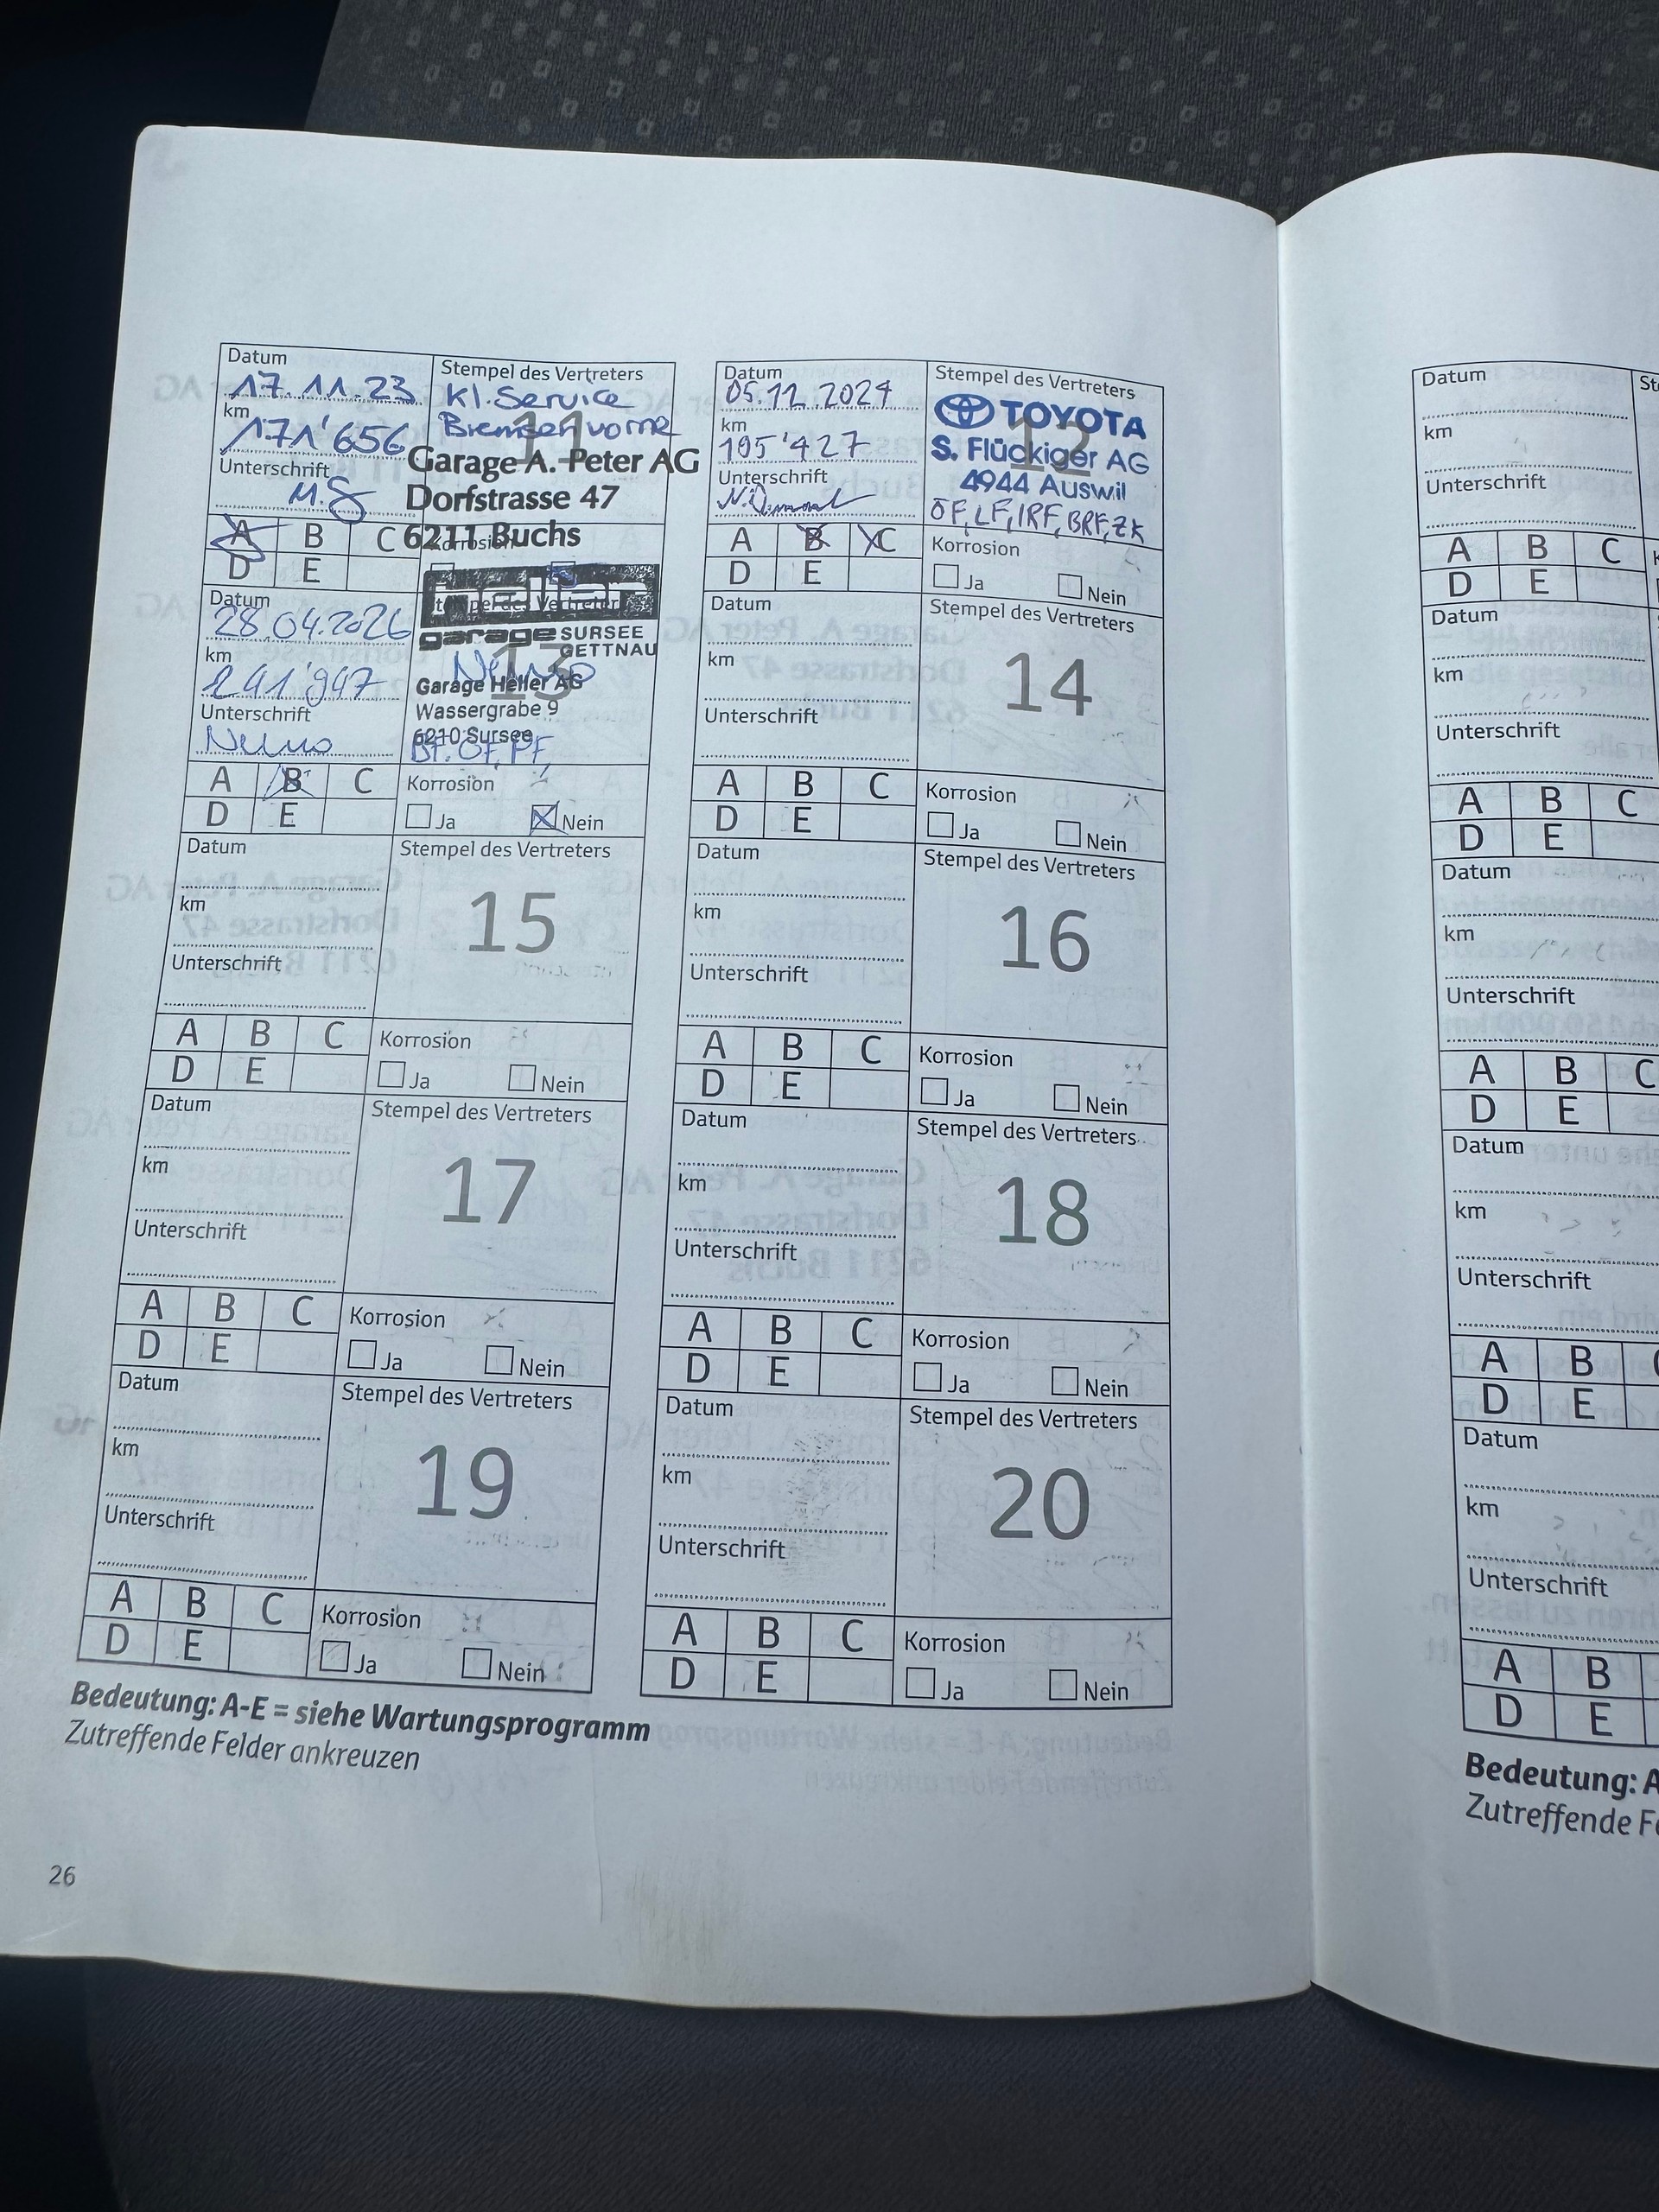 Datum
17.11.23
km
171'656
Unterschrift
M.S
Stempel des Vertreters
Kl. Service
Bremsen vorne
11
Garage A. Peter AG
Dorfstrasse 47
6211 Buchs
A B C
D E
Korrosion
Datum
05.12.2024
km
195'427
Unterschrift
Stempel des Vertreters
12
TOYOTA
S. Flückiger AG
4944 Auswil
ÖF, LF, IRF, BRF, ZK
A B C
D E
Korrosion
Ja Nein
Datum
28.04.2026
km
241'947
Unterschrift
Stempel des Vertreters
13
garage SURSEE
GETTNAU
Garage Heller AG
Wassergrabe 9
6210 Sursee
BF. ÖF, PF,
A B C
D E
Korrosion
Ja Nein
Datum
km
Unterschrift
Stempel des Vertreters
14
A B C
D E
Korrosion
Ja Nein
Datum
km
Unterschrift
Stempel des Vertreters
15
A B C
D E
Korrosion
Ja Nein
Datum
km
Unterschrift
Stempel des Vertreters
16
A B C
D E
Korrosion
Ja Nein
Datum
km
Unterschrift
Stempel des Vertreters
17
A B C
D E
Korrosion
Ja Nein
Datum
km
Unterschrift
Stempel des Vertreters
18
A B C
D E
Korrosion
Ja Nein
Datum
km
Unterschrift
Stempel des Vertreters
19
A B C
D E
Korrosion
Ja Nein
Datum
km
Unterschrift
Stempel des Vertreters
20
A B C
D E
Korrosion
Ja Nein
Bedeutung: A-E = siehe Wartungsprogramm
Zutreffende Felder ankreuzen
26
Datum
km
Unterschrift
A B C
D E
Datum
km
Unterschrift
A B C
D E
Datum
km
Unterschrift
A B C
D E
Datum
km
Unterschrift
A B
D E
Datum
km
Unterschrift
A B
D E
Bedeutung: A
Zutreffende